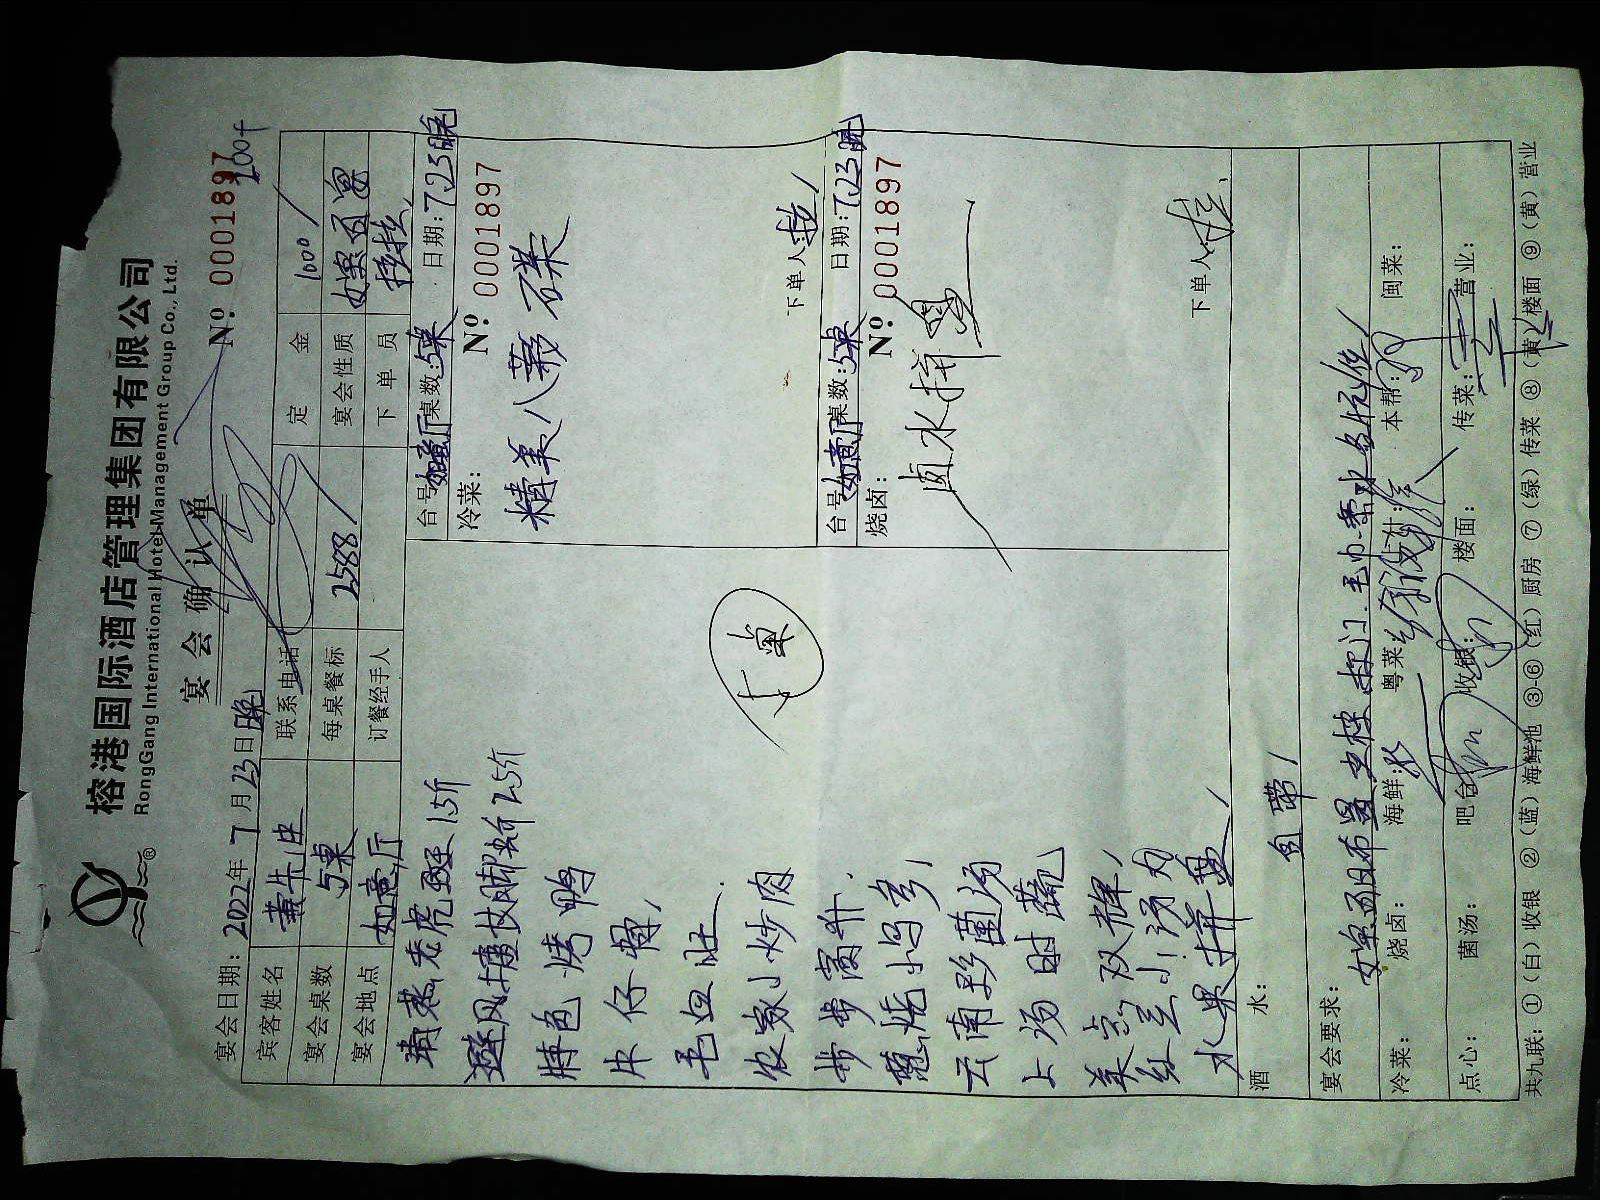 榕港国际酒店管理集团有限公司
RongGang International Hotel Management Group Co., Ltd.
宴会确认单
宴会日期：2022年7月23日晚 Nº 0001897
宾客姓名 黄先生 联系电话 定金 1000
宴会桌数 5桌 每桌餐标 2588 宴会性质
宴会地点 如意厅 订餐经手人 下单员
台号 如意厅 桌数：5桌 日期：7.23晚
冷菜： Nº 0001897
精美八 碟
下单人
台号 如意厅 桌数：5桌 日期：7.23晚
烧卤： Nº 0001897
卤水拼盘
下单人
清蒸老虎斑 1.5斤
避风塘 2.5斤
特色烤鸭
牛仔骨
毛血旺
农家小炒肉
步步高升
葱烧
云南野菌汤
上汤时蔬
美点双辉
水果拼盘
酒水： 自带
宴会要求：
冷菜： 烧卤： 海鲜： 粤菜 本帮： 闽菜：
点心： 菌汤： 吧台 收银： 楼面： 传菜： 营业：
共九联：①（白）收银 ②（蓝）海鲜池 ③-⑥（红）厨房 ⑦（绿）传菜 ⑧（黄）楼面 ⑨（黄）营业